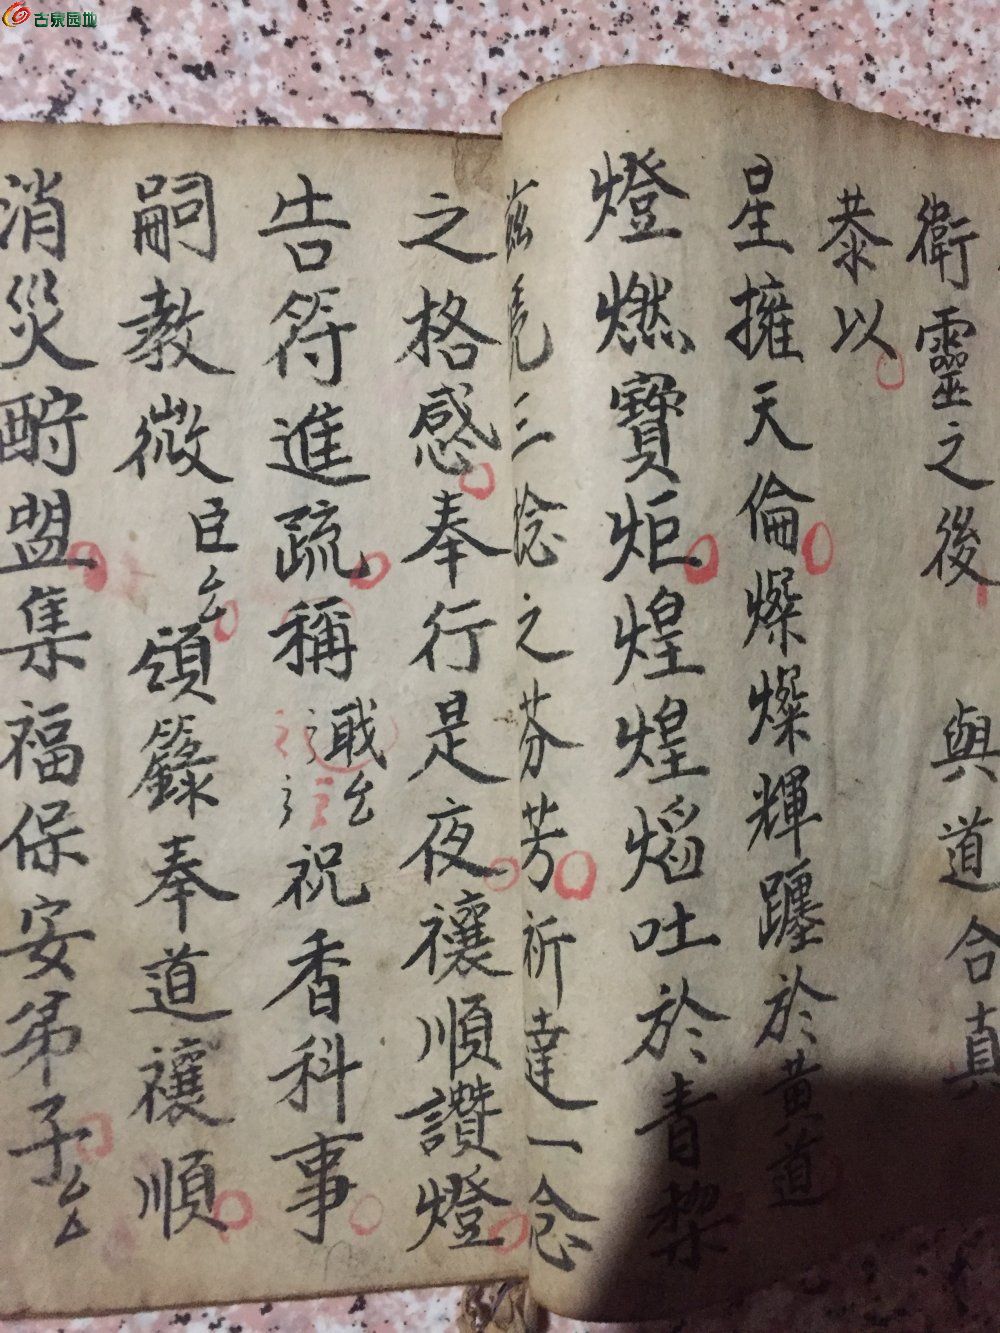 古泉园地
衛靈之後 與道合真
恭以
星擁天倫燦燦輝躔於黃道
燈燃寶炬煌煌焰吐於青藜
兹凭三捻之芬芳祈達一念
之格感奉行是夜禳順讚燈
告符進疏稱職厶祝香科事
嗣教微臣厶領籙奉道禳順
消災酧盟集福保安弟子厶厶